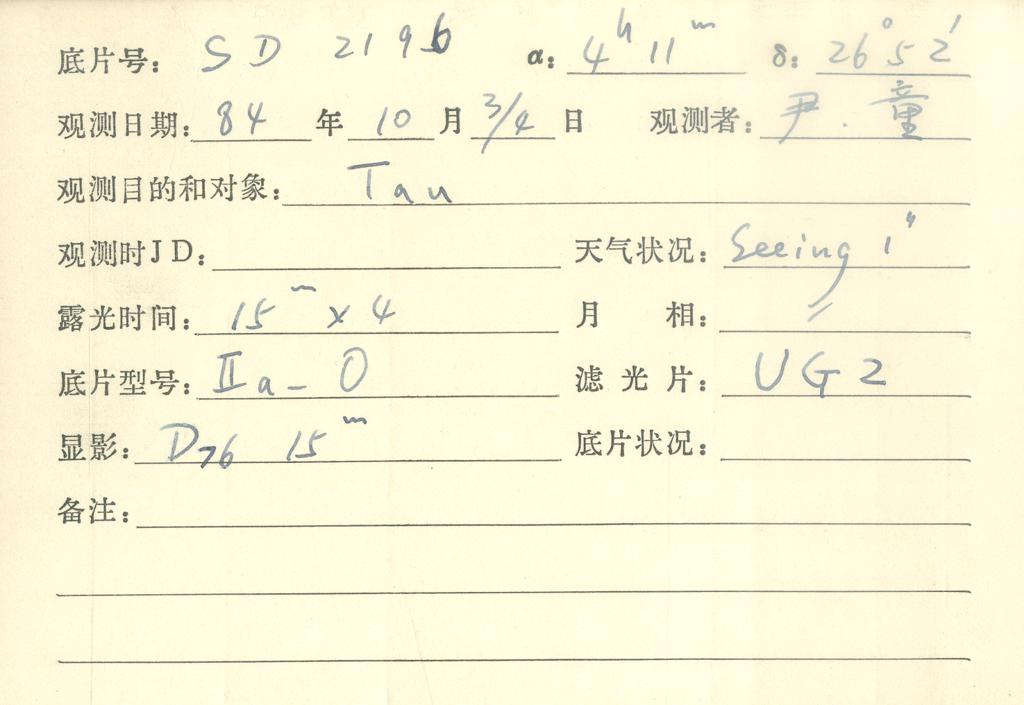 底片号: SD 2196 α: 4h 11m δ: 26°52′
观测日期: 84 年 10 月 3/4 日 观测者: 尹.童
观测目的和对象: Tau
观测时JD: 天气状况: Seeing 1"
露光时间: 15m x 4 月 相: 〃
底片型号: IIa-O 滤光片: UG2
显影: D76 15m 底片状况:
备注: